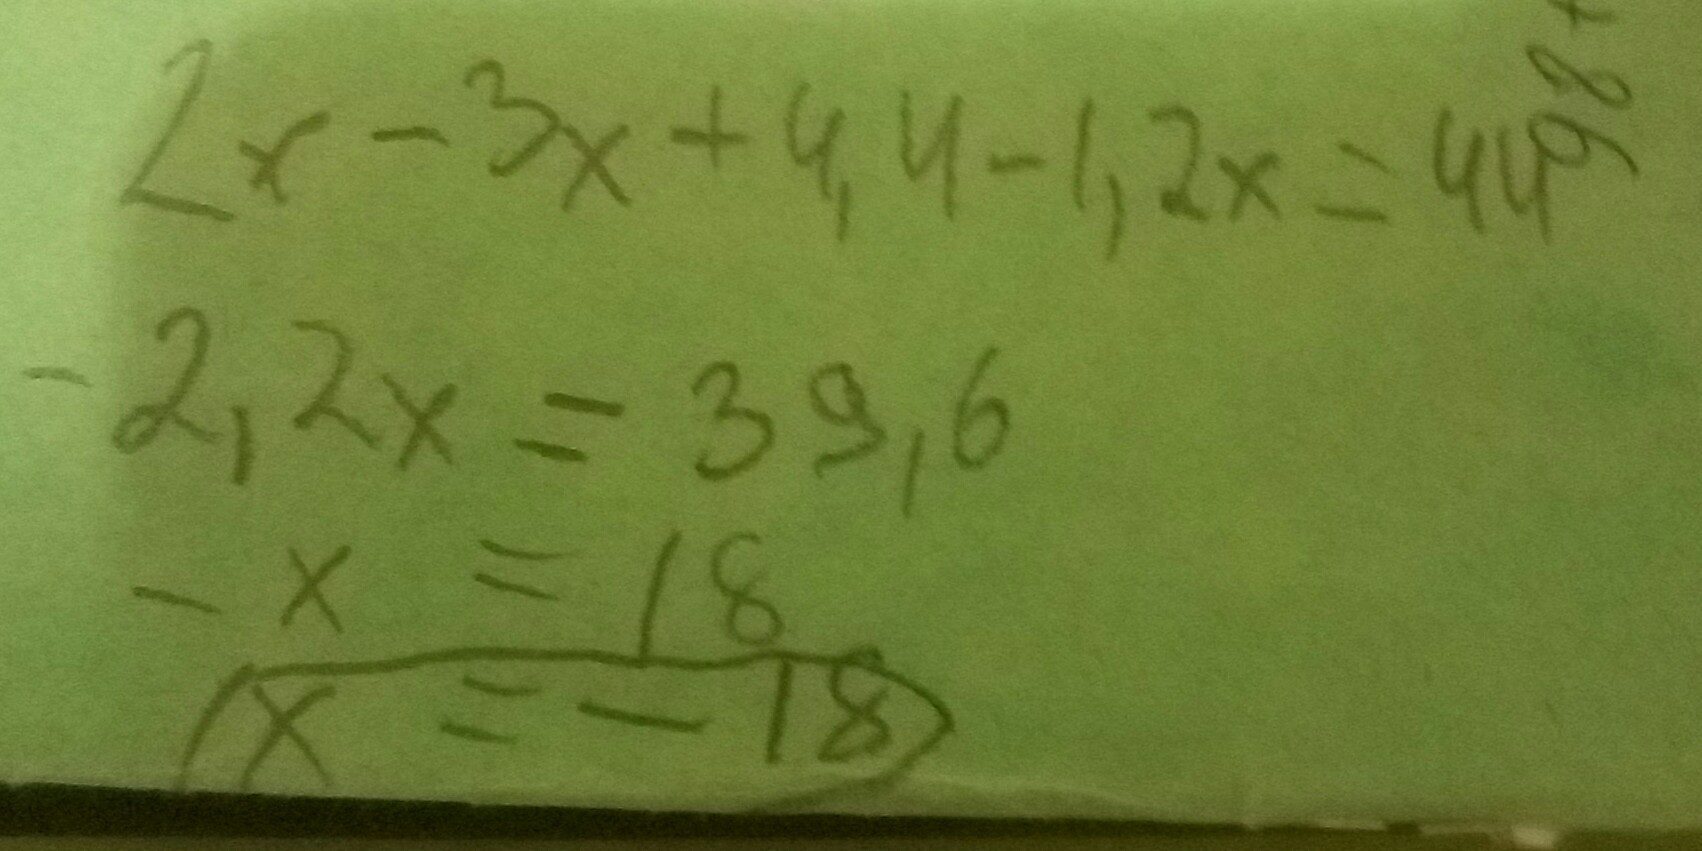 2x - 3x + 4,4 - 1,2x = 44
-2,2x = 39,6
-x = 18
x = -18